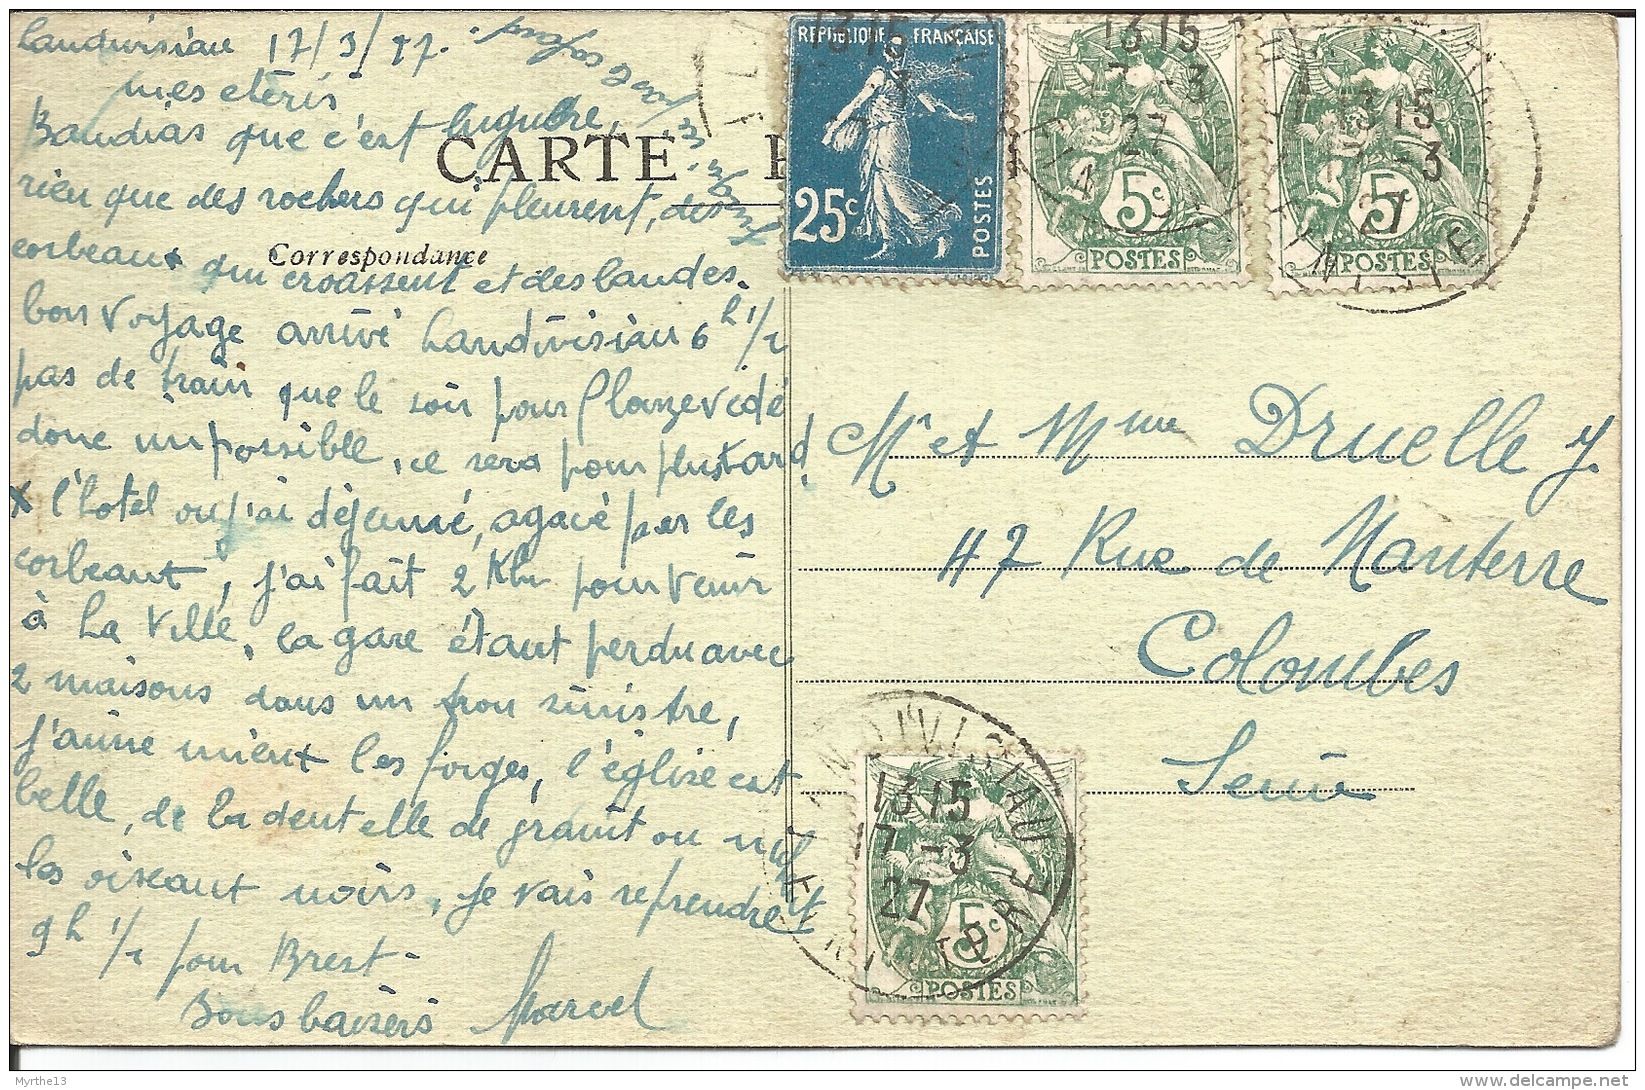 Landivisiau 17/3/27.
mes chéris
que c'est lugubre,
CARTE
rien que des rochers qui pleurent, des
Correspondance
corbeaux qui croassent et des landes.
bon voyage arrivé Landivisiau 6 h 1/2
pas de train que le soir pour
donc impossible, ce sera pour plustard
x l'hotel ou j'ai déjeuné, agacé par les
corbeaux, j'ai fait 2 Km pour venir
à La Ville, la gare étant perdu avec
2 maisons dans un trou sinistre,
j'aime mieux les forges, l'église est
belle, de la dentelle de granit ou
les oiseaux noirs, je vais reprendre
9h 1/2 pour Brest -
Bons baisers Marcel
RÉPUBLIQUE FRANÇAISE
25c
POSTES
13 15
17 -3
27
5c
POSTES
13 15
17 -3
27
5c
POSTES
Mr et Mme Druelle J.
47 Rue de Nanterre
Colombes
Seine
LANDIVISIAU
FINISTERE
13 15
17 -3
27
5c
POSTES
Myrthe13